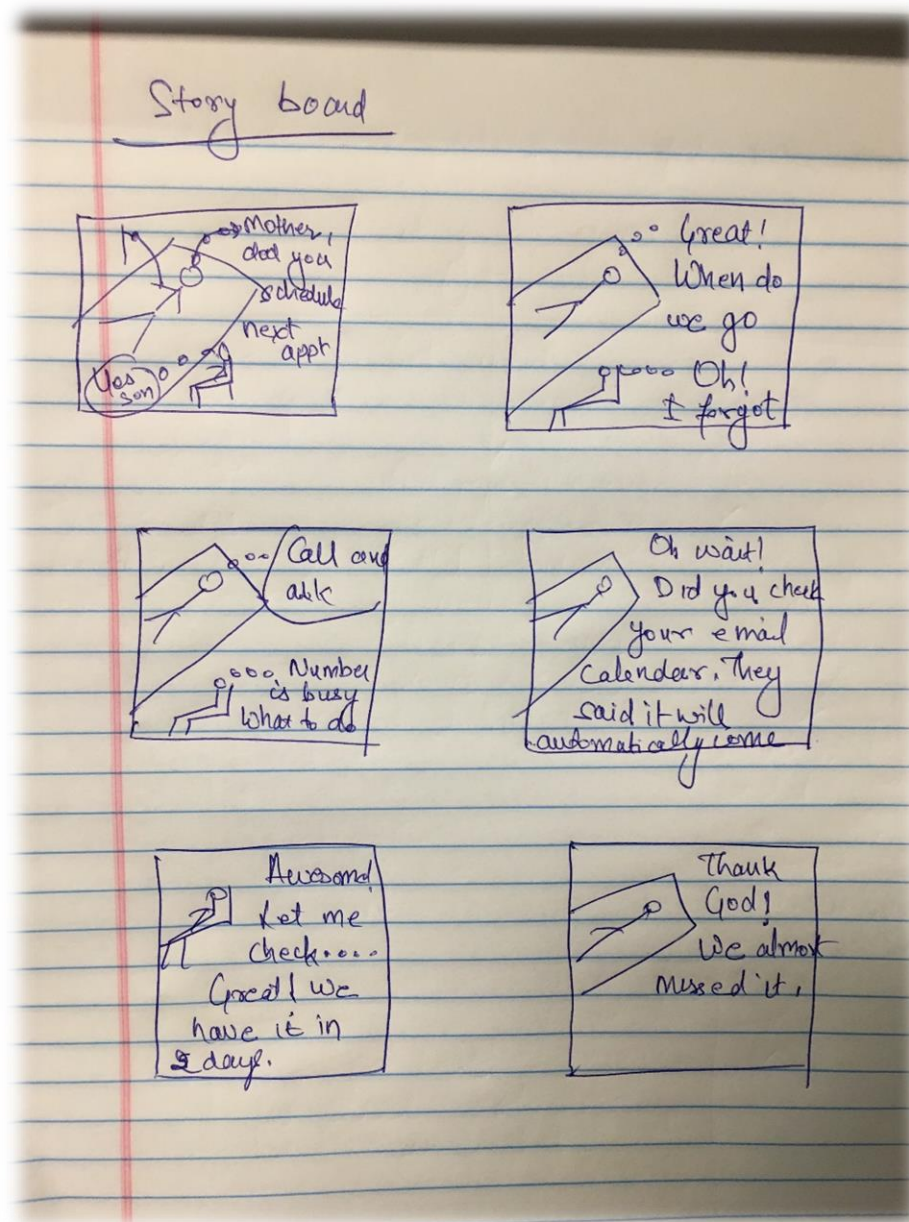 Story board
Mother,
did you
schedule
next
appt
Yes
son
Great!
When do
we go
Oh!
I forgot
Call and
ask
Number
is busy
What to do
Oh wait!
Did you check
your email
Calendar. They
said it will
automatically come
Awesome!
Let me
check....
Great! We
have it in
2 days.
Thank
God!
We almost
missed it.